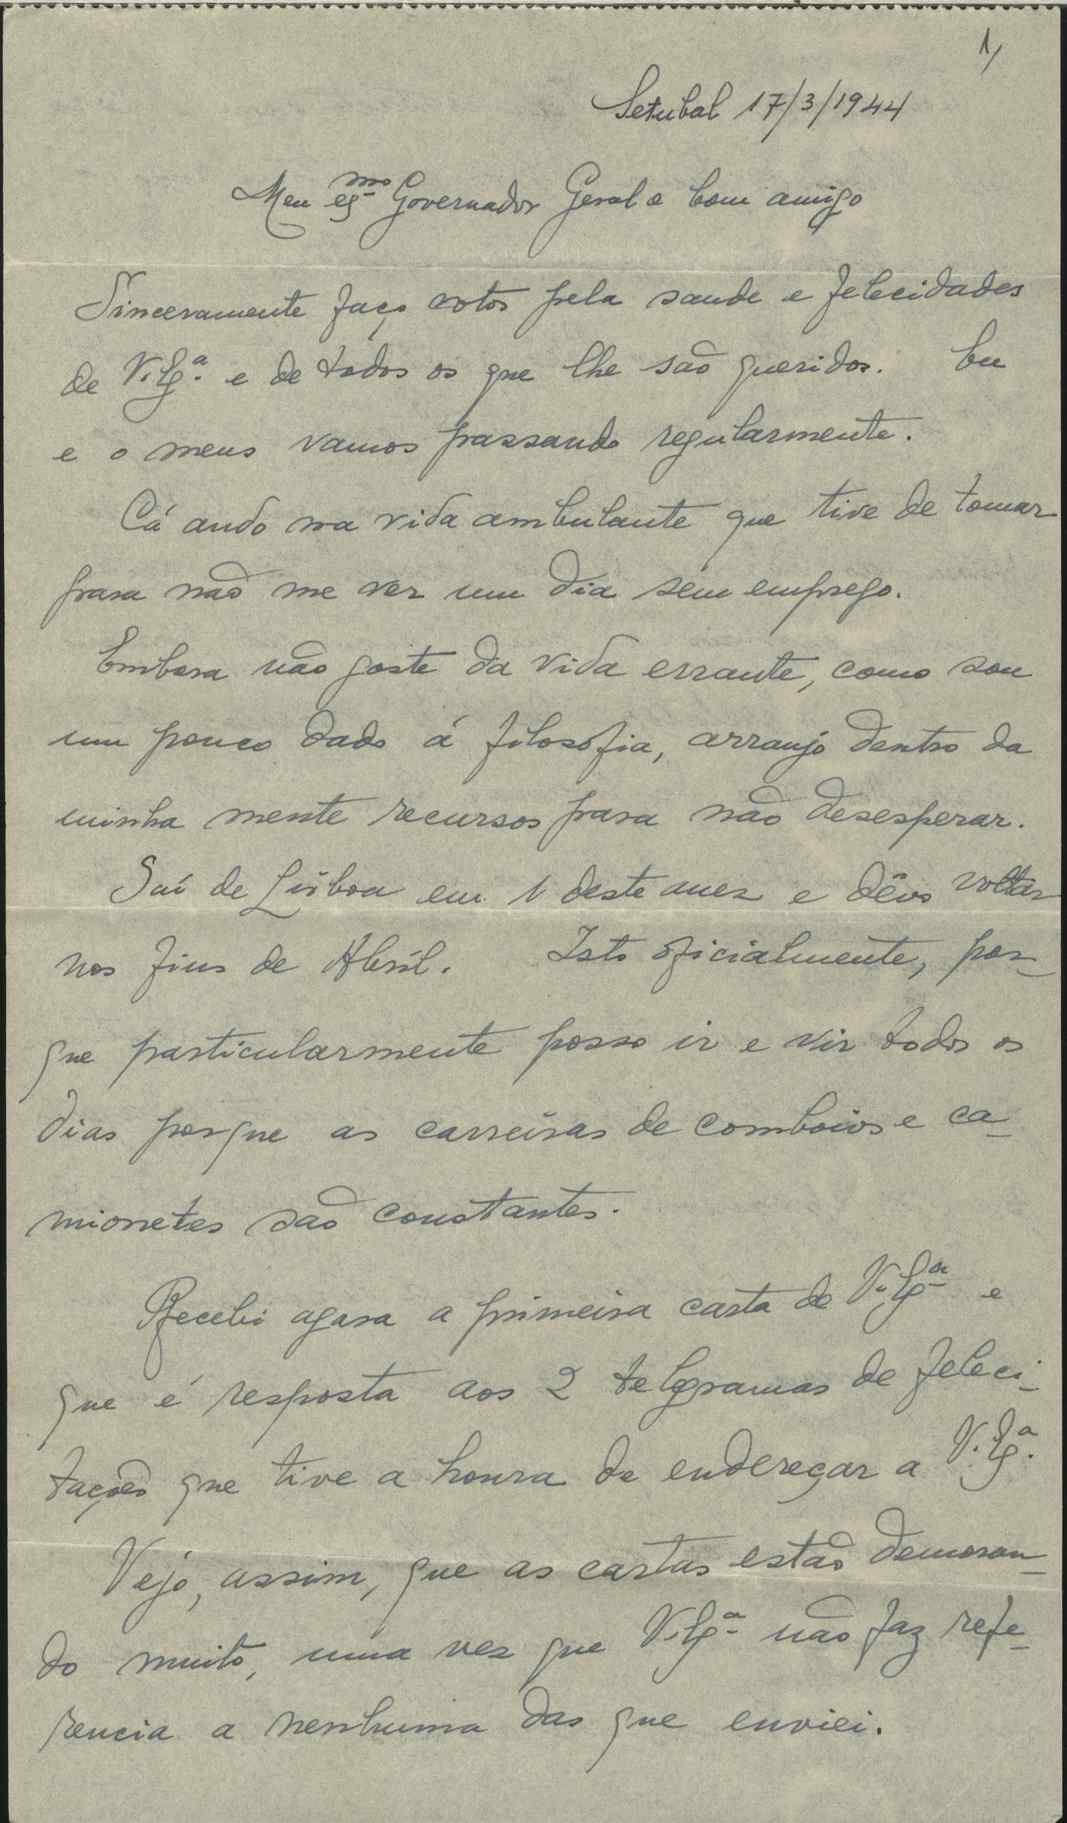 1,
Setubal 17/3/1944
Meu Exmo Governador Geral e bom amigo
Sinceramente faço votos pela saude e felecidades
de V. Exª. e de todos os que lhe são queridos. Eu
e o meus vamos passando regularmente.
Cá ando na vida ambulante que tive de tomar
para não me ver um dia sem emprego.
Embora não goste da vida errante, como sou
um pouco dado á filosofia, arranjo dentro da
minha mente recursos para não desesperar.
Saí de Lisboa em 1 deste mez e dêvo voltar
nos fins de Abril. Isto oficialmente, por-
que particularmente posso ir e vir todos os
dias porque as carreiras de comboios e ca-
mionetes são constantes.
Recebi agora a primeira carta de V. Exª e
que é resposta aos 2 telgramas de feleci-
tações que tive a honra de endereçar a V. Exª.
Vejo, assim, que as cartas estão demoran-
do muito, uma vez que V. Exª não faz refe-
rencia a nenhuma das que enviei.